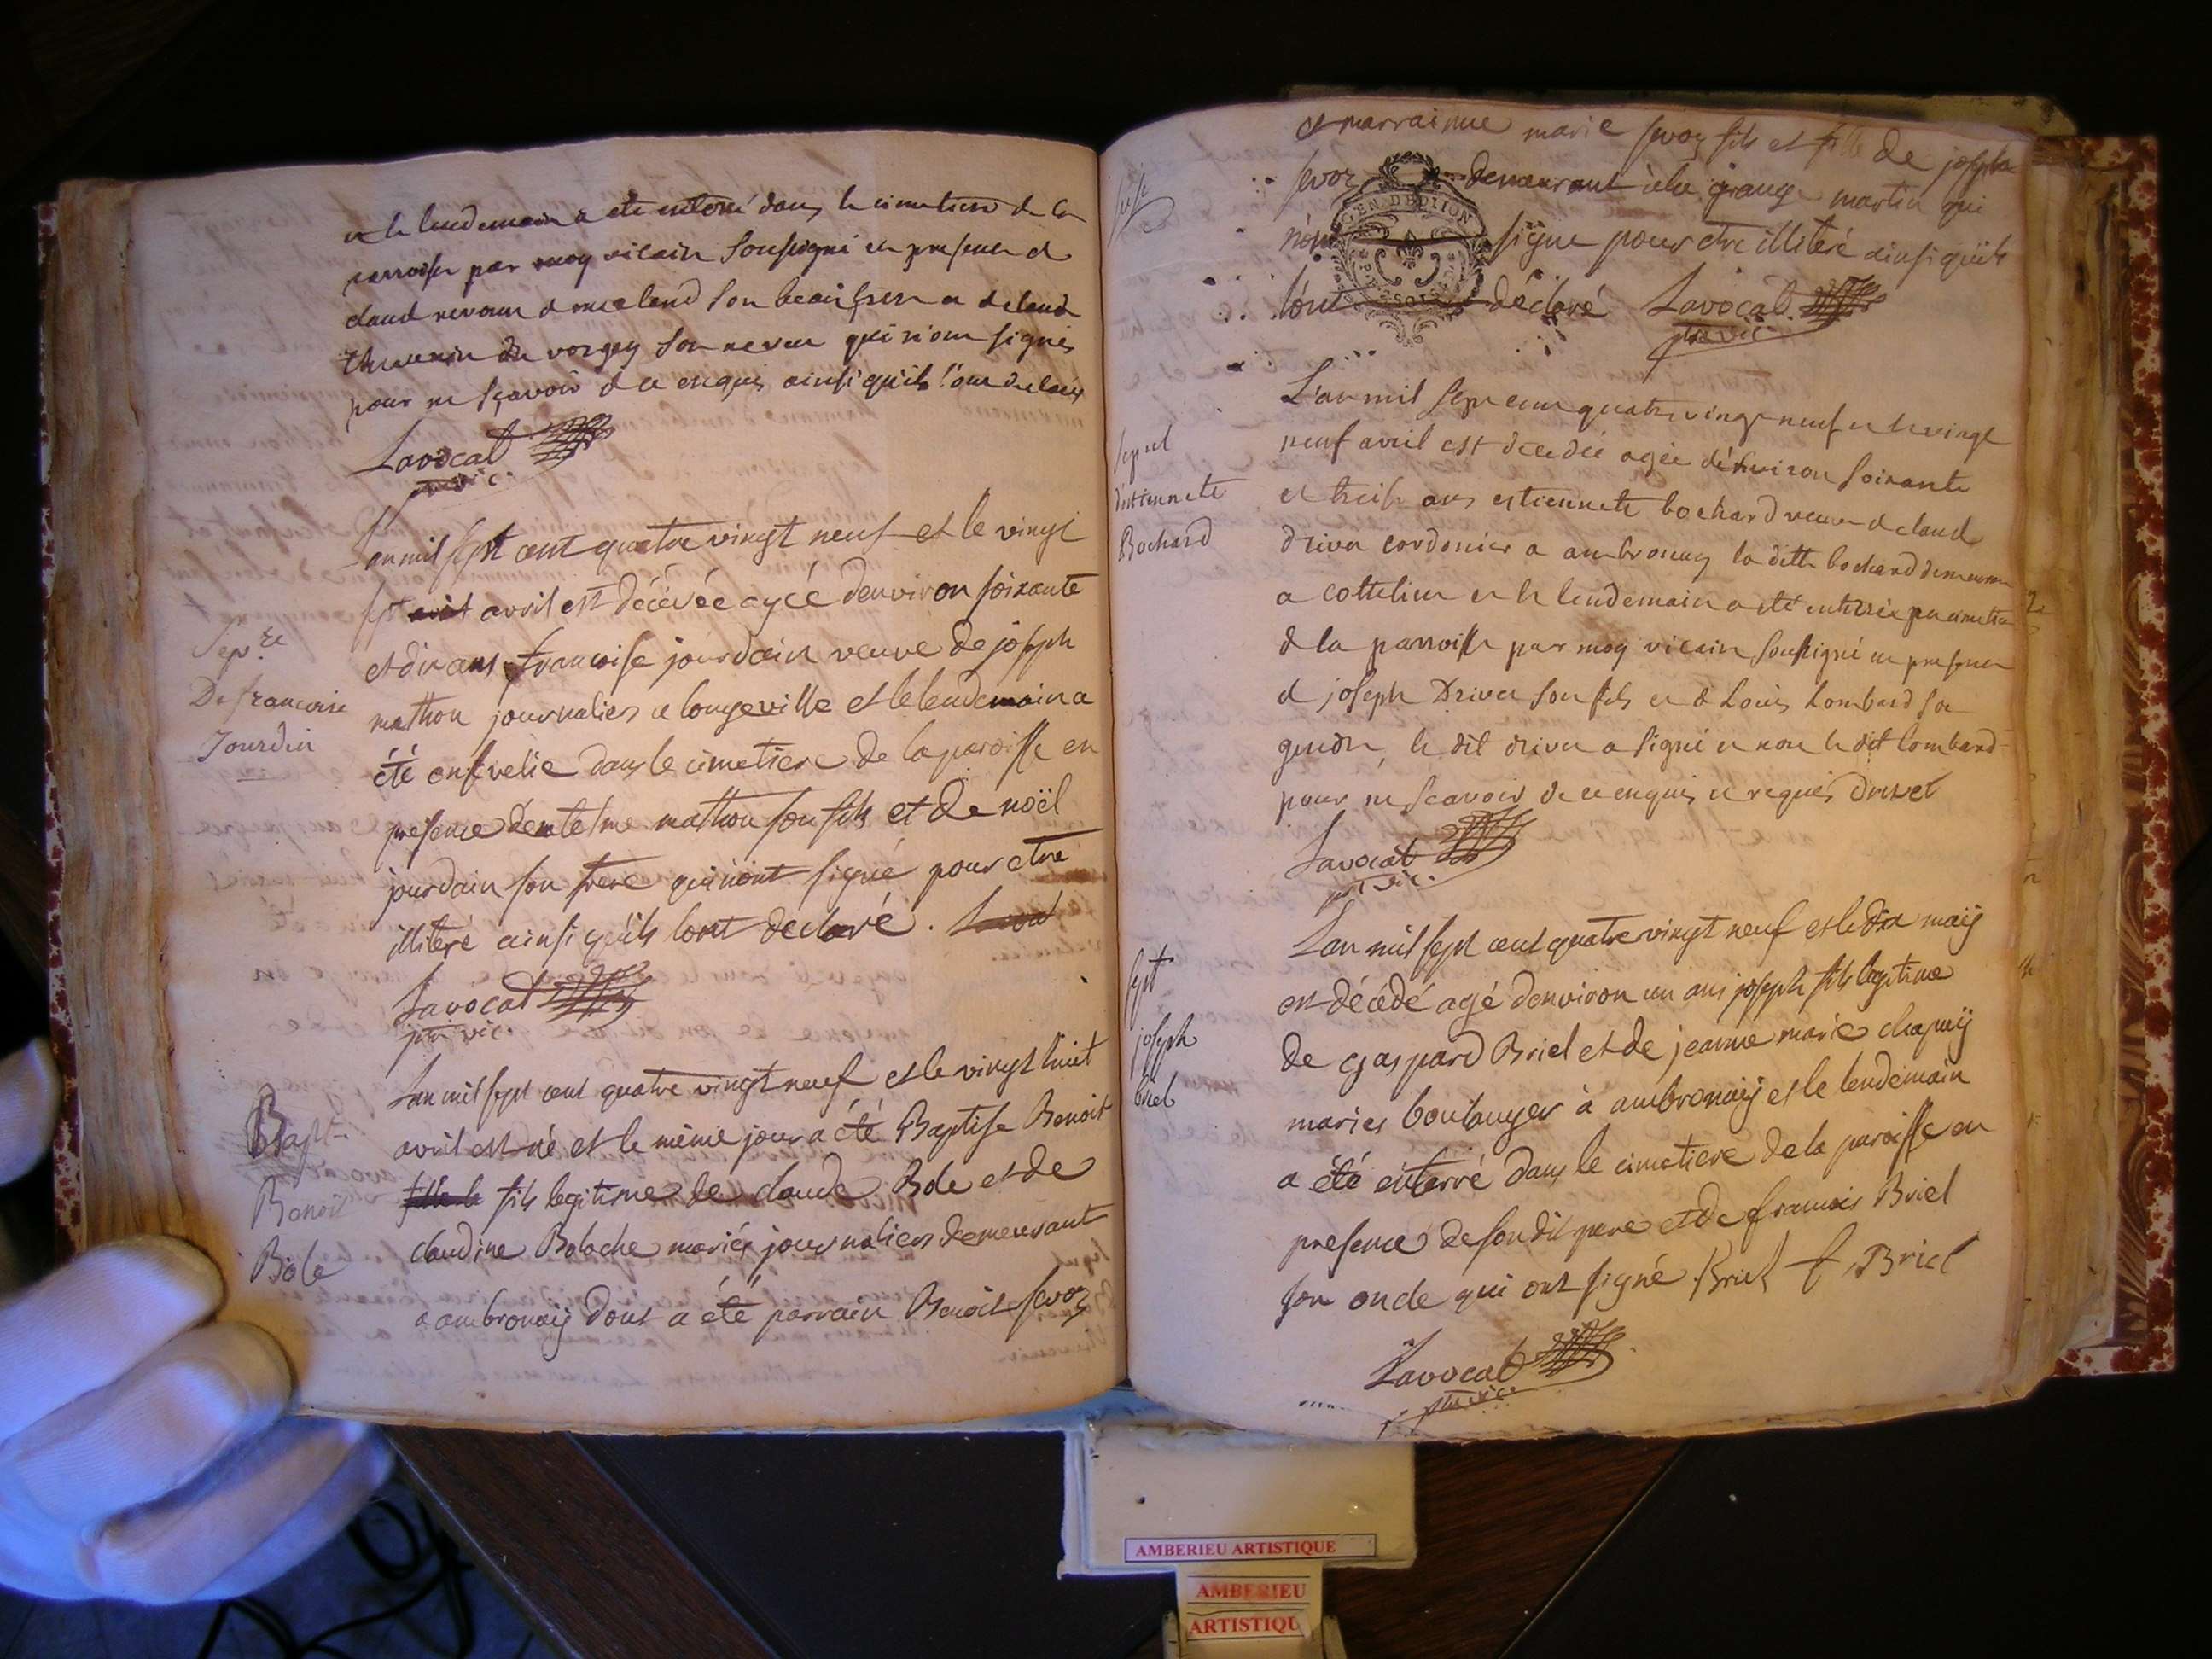 et le lendemain a ete enterré dans le cimetiere de la
parroisse par moy vicaire soussigné en presence de
claud revoux de merland son beaufrere et de claud
thevenin du vorgey son neveu qui n'ont signés
pour ne sçavoir de ce enquis ainsi qu'ils l'ont declaré
Lavocat
ptre vic.
Sep.re
De francoise
Jourdin
L'an mil sept cent quatre vingt neuf et le vingt
sept avril est décévée agée denviron soixante
et dix ans francoise jourdain veuve de joseph
mathon journalier a longeville et le lendemain a
été ensevelie dans le cimetiere de la paroisse en
presence d'entelme mathon son fils et de noël
jourdain son frere qui n'ont signé pour etre
illiteré ainsi qu'ils l'ont declaré.
Lavocat
ptre vic.
Bapt.
Benoit
Bôle
L'an mil sept cent quatre vingt neuf et le vingt huit
avril est né et le même jour a été Baptise Benoit
fils legitime de claude Bole et de
claudine Boloche mariés journaliers demeurant
a ambronaÿ dont a été parrain Benoit Sevoz
et marrainne marie Sevoz fils et fille de joseph
Sevoz demeurant à la grange martin qui
n'ont signe pour etre illiteré ainsi qu'ils
l'ont déclaré Lavocat
ptre vic.
GEN D BOURG
Sepul
d'estiennete
Bochard
L'an mil sept cent quatre vingt neuf et le vingt
neuf avril est decedée agée d'environ soixante
et treise ans estiennete bochard veuve de claud
drivet cordonier a ambronay la ditte bochard demeurant
a cottelieu et le lendemain a eté enterrée au cimetiere
de la parroisse par moy vicaire soussigné en presence
de joseph Drivet son fils et de Louis Lombard son
gendre, le dit drivet a signé et non le dit lombard
pour ne scavoir de ce enquis et requis Drivet
Lavocat
ptre vic.
sept
joseph
briel
L'an mil sept cent quatre vingt neuf et le dix maij
est décédé agé denviron un ans joseph fils legitime
de gaspard Briel et de jeanne marie chapuij
mariés boulanger à ambronaij et le lendemain
a été enterré dans le cimetiere de la paroisse en
presence de son dit pere et de francois Briel
son oncle qui ont signé Briel f Briel
Lavocat
ptre vic.
AMBERIEU ARTISTIQUE
AMBERIEU
ARTISTIQU